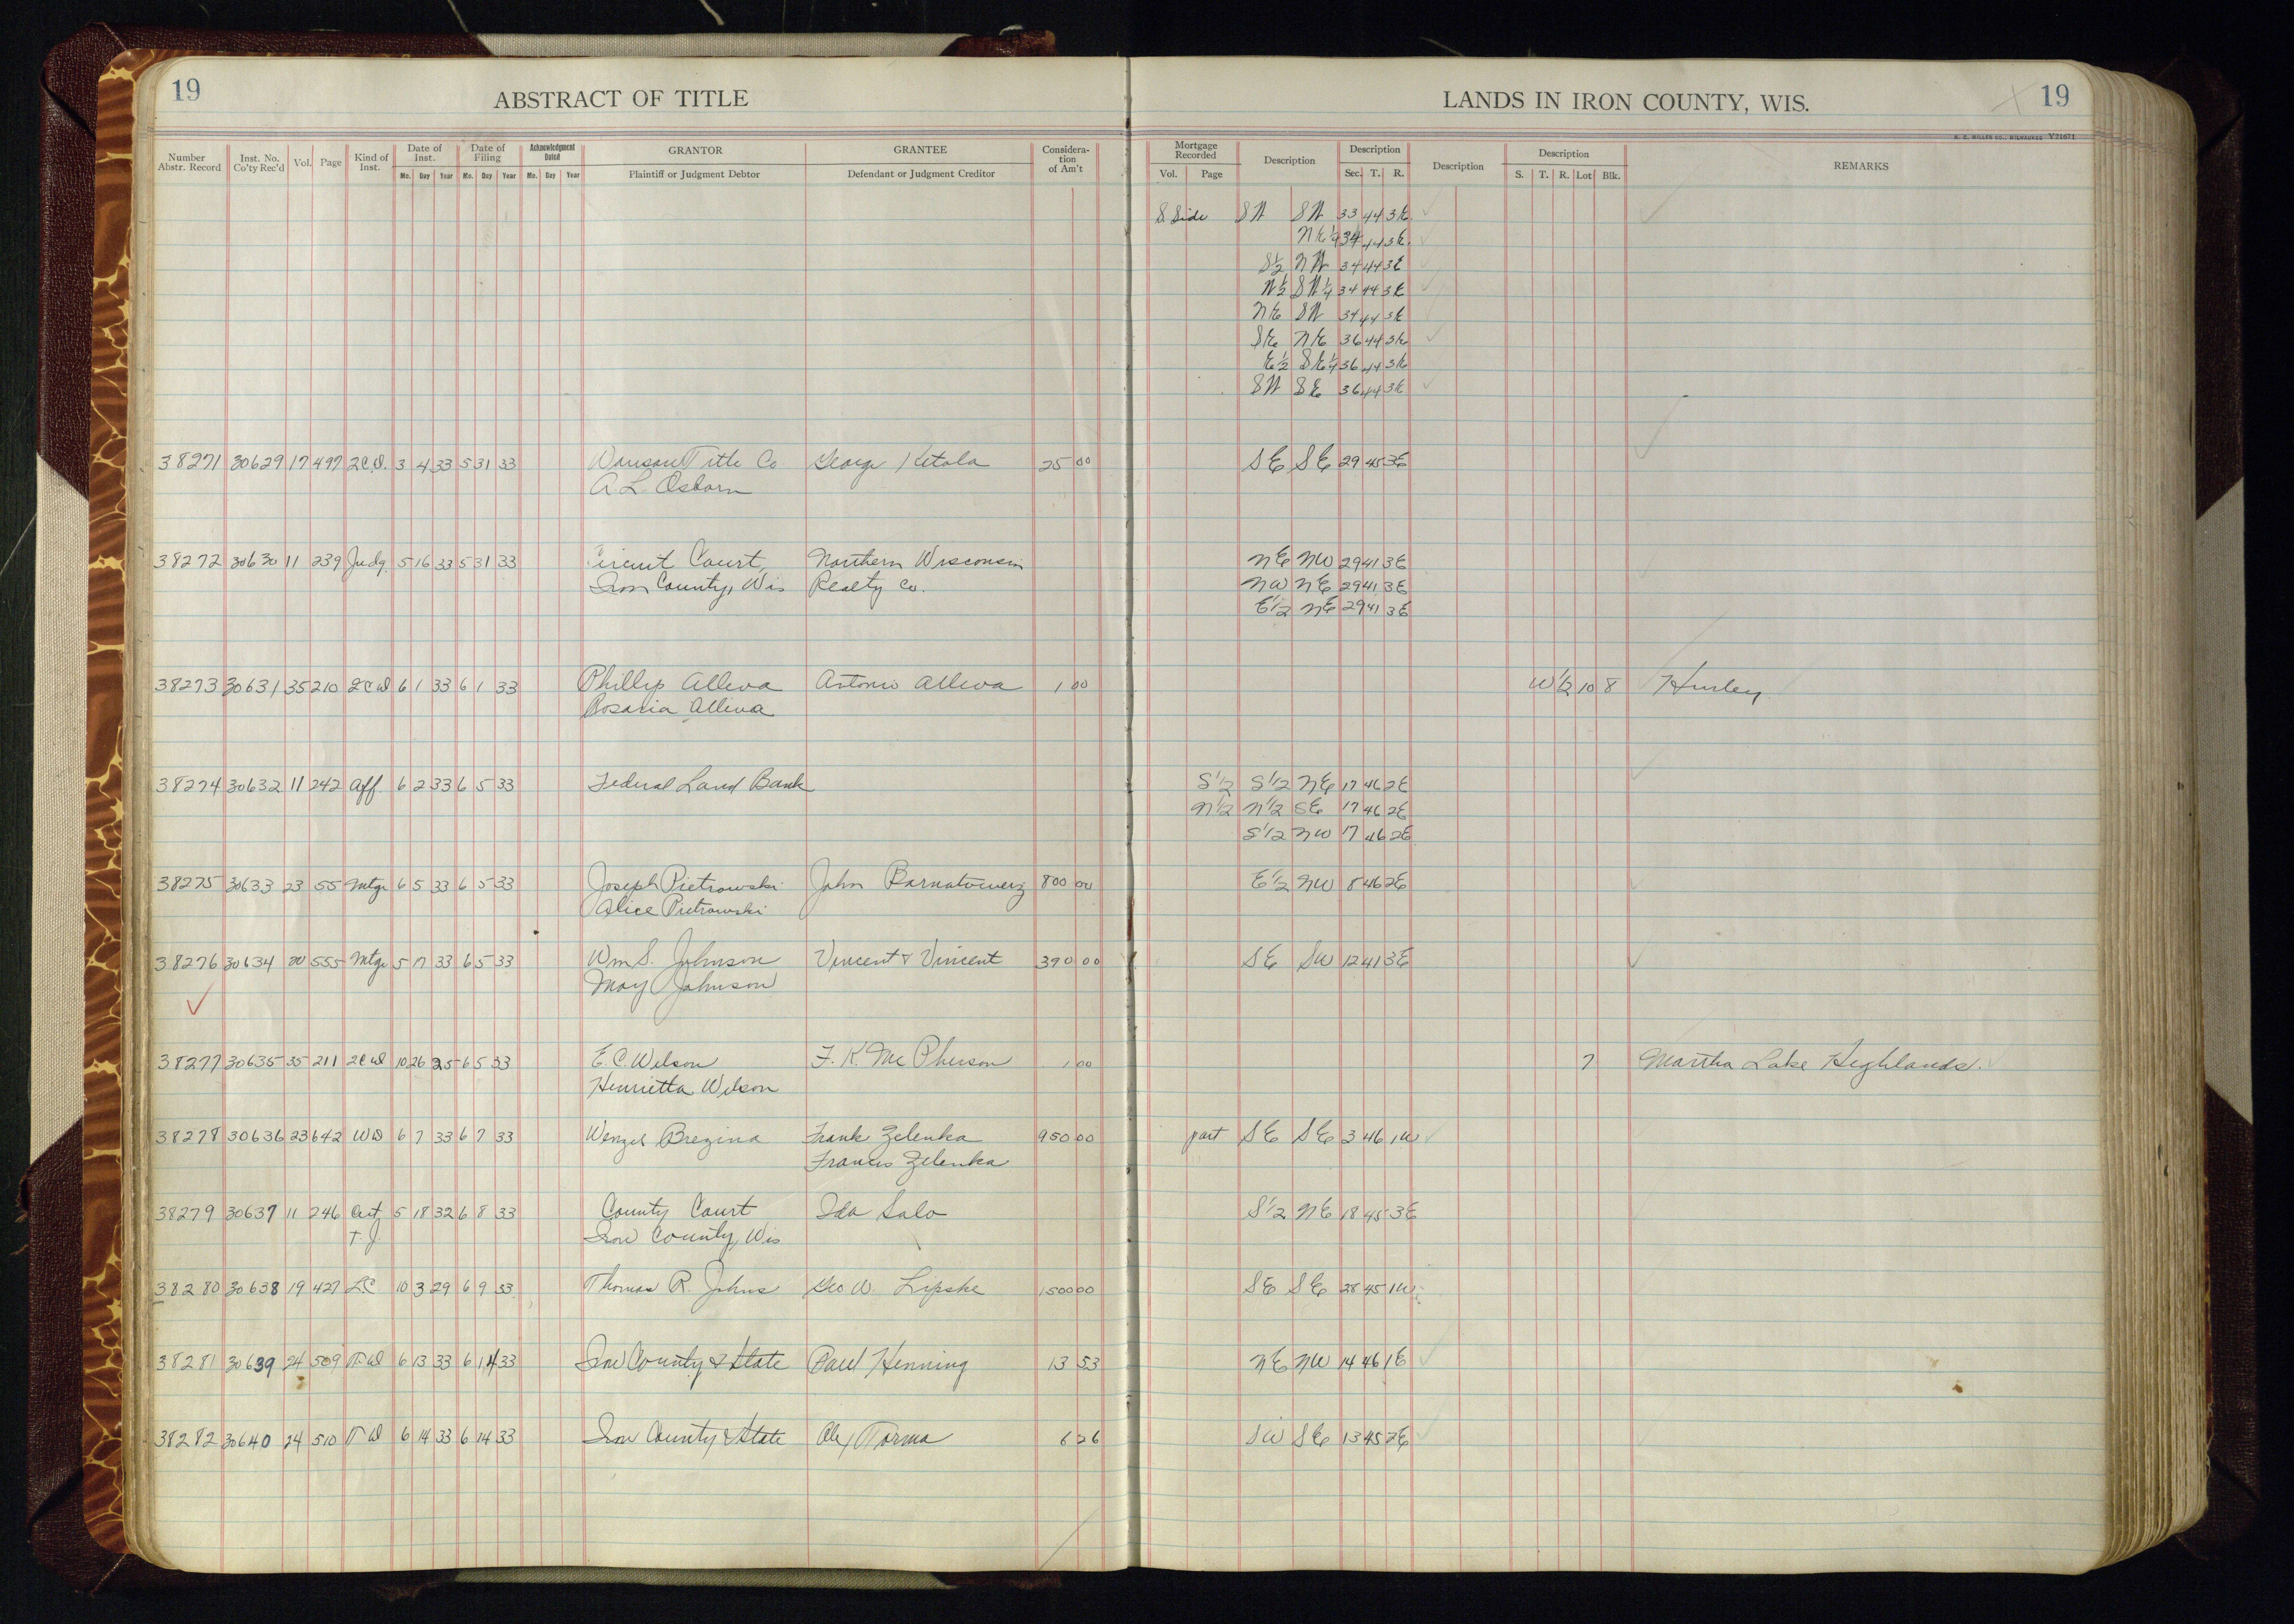 19
ABSTRACT OF TITLE
LANDS IN IRON COUNTY, WIS.
19
Number Abstr. Record Inst. No. Co'ty Rec'd Vol. Page Kind of Inst. Date of Inst. Mo. Day Year Date of Filing Mo. Day Year Acknowledgment Dated Mo. Day Year GRANTOR Plaintiff or Judgment Debtor GRANTEE Defendant or Judgment Creditor Considera-tion of Am't
Mortgage Recorded Vol. Page Description Description Sec. T. R. Description Description S. T. R. Lot Blk. REMARKS
S Side SW SW 33 44 3E
NE 1/4 34 44 3E
S 1/2 NW 34 44 3E
N 1/2 SW 1/4 34 44 3E
NE SW 34 44 3E
SE NE 36 44 3E
E 1/2 SE 1/4 36 44 3E
SW SE 36 44 3E
38271 30629 17 497 2CD. 3 4 33 5 31 33 Title Co George Ketola 25 00 SE SE 29 45 3E
A. L. Osborn
38272 30630 11 239 Judg. 5 16 33 5 31 33 Circuit Court, Northern Wisconsin NE NW 29 41 3E
Iron County, Wis Realty Co. NW NE 29 41 3E
E 1/2 NE 29 41 3E
38273 30631 35 210 2CD 6 1 33 6 1 33 Phillip Alleva Antonio Alleva 1 00 W 1/2 10 8 Hurley
Rosaria Alleva
38274 30632 11 242 Aff. 6 2 33 6 5 33 Federal Land Bank S 1/2 S 1/2 NE 17 46 2E
N 1/2 N 1/2 SE 17 46 2E
S 1/2 NW 17 46 2E
38275 30633 23 55 Mtge 6 5 33 6 5 33 Joseph Pietrowski John 800 00 E 1/2 NW 8 46 2E
Alice Pietrowski
38276 30634 20 555 Mtge 5 17 33 6 5 33 Wm S. Johnson Vincent & Vincent 390 00 SE SW 12 41 3E
May Johnson
38277 30635 35 211 2CD 10 26 25 6 5 33 E. C. Wilson F. K. McPherson 1 00 7 Martha Lake Highlands.
Henrietta Wilson
38278 30636 23 642 WD 6 7 33 6 7 33 Wenzel Brezina Frank Zelenka 950 00 part SE SE 3 46 1W
Francis Zelenka
38279 30637 11 246 Cert 5 18 32 6 8 33 County Court Ida Salo S 1/2 NE 18 45 3E
T. J. Iron County, Wis
38280 30638 19 427 L.C. 10 3 29 6 9 33 Thomas R. Johns Geo W. Lipske 1500 00 SE SE 28 45 1W
38281 30639 24 509 T.D 6 13 33 6 14 33 Iron County & State Paul Henning 13 53 NE NW 14 46 1E
38282 30640 24 510 T D 6 14 33 6 14 33 Iron County & State Alex Torma 6 26 SW SE 13 45 2E